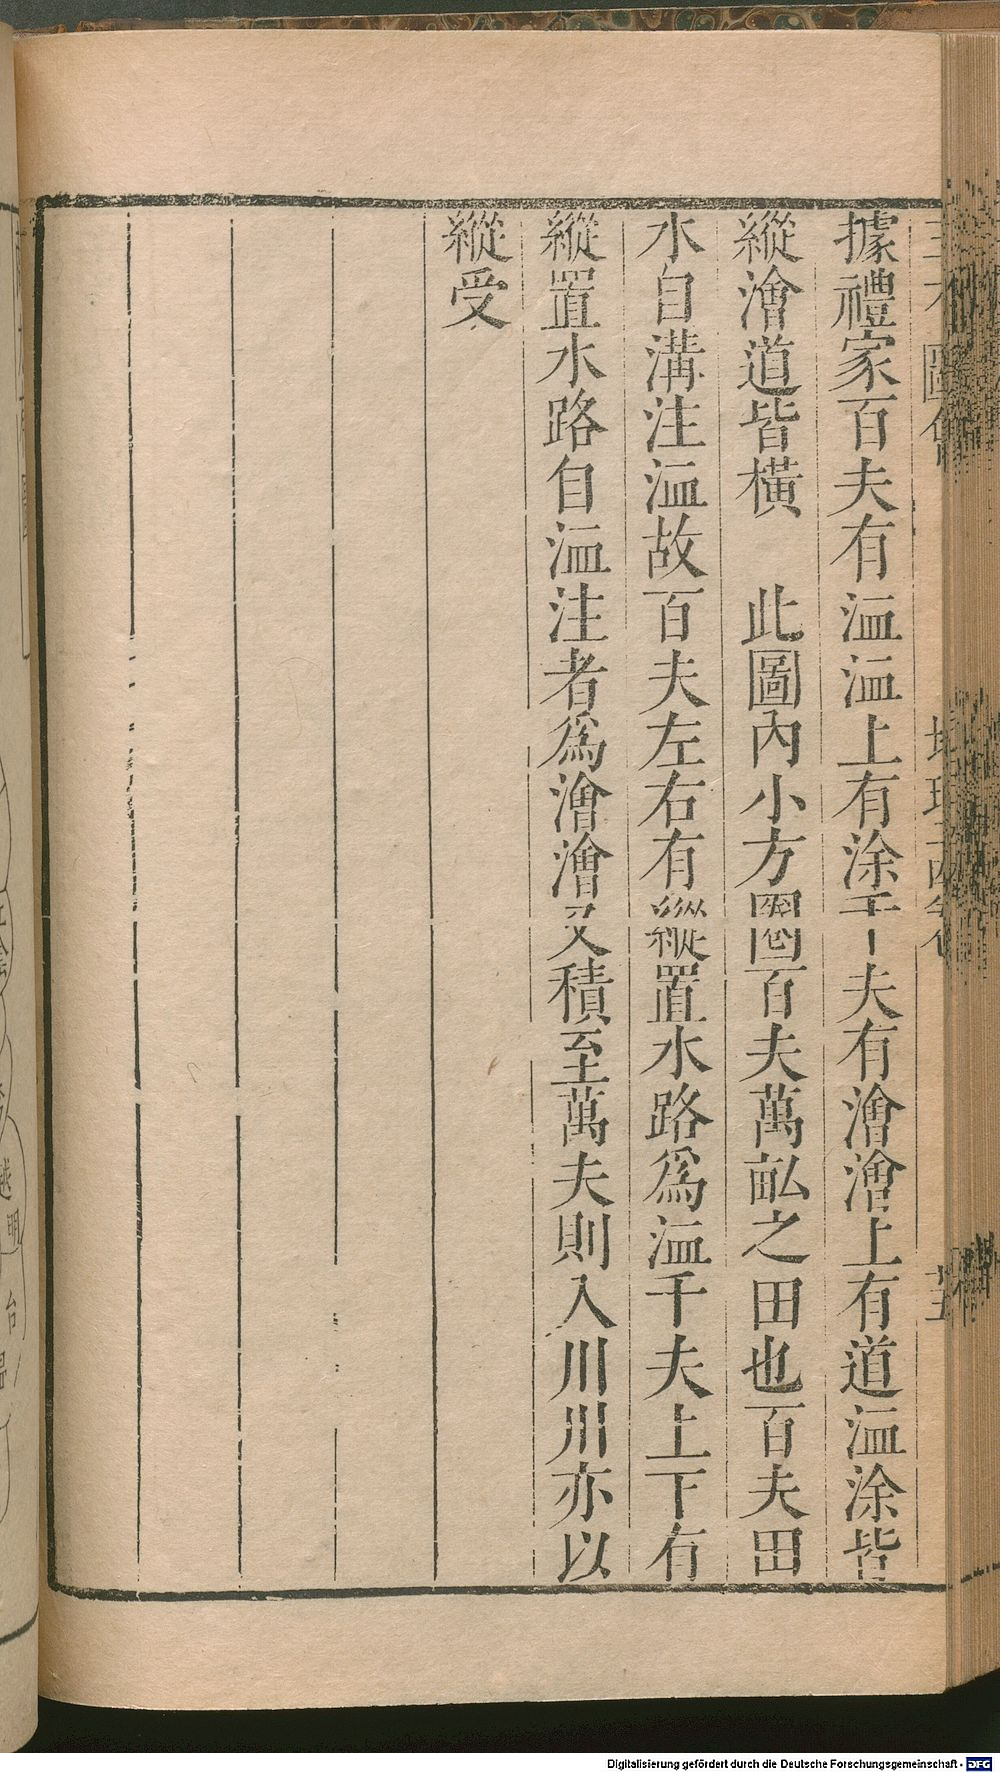 據禮家百夫有洫洫上有涂千夫有澮澮上有道洫涂皆
縱澮道皆橫　此圖內小方圈百夫萬畝之田也百夫田
水自溝注洫故百夫左右有縱置水路爲洫千夫上下有
縱置水路自洫注者爲澮澮又積至萬夫則入川川亦以
縱受
圖
越 明 台 溫
Digitalisierung gefördert durch die Deutsche Forschungsgemeinschaft - DFG